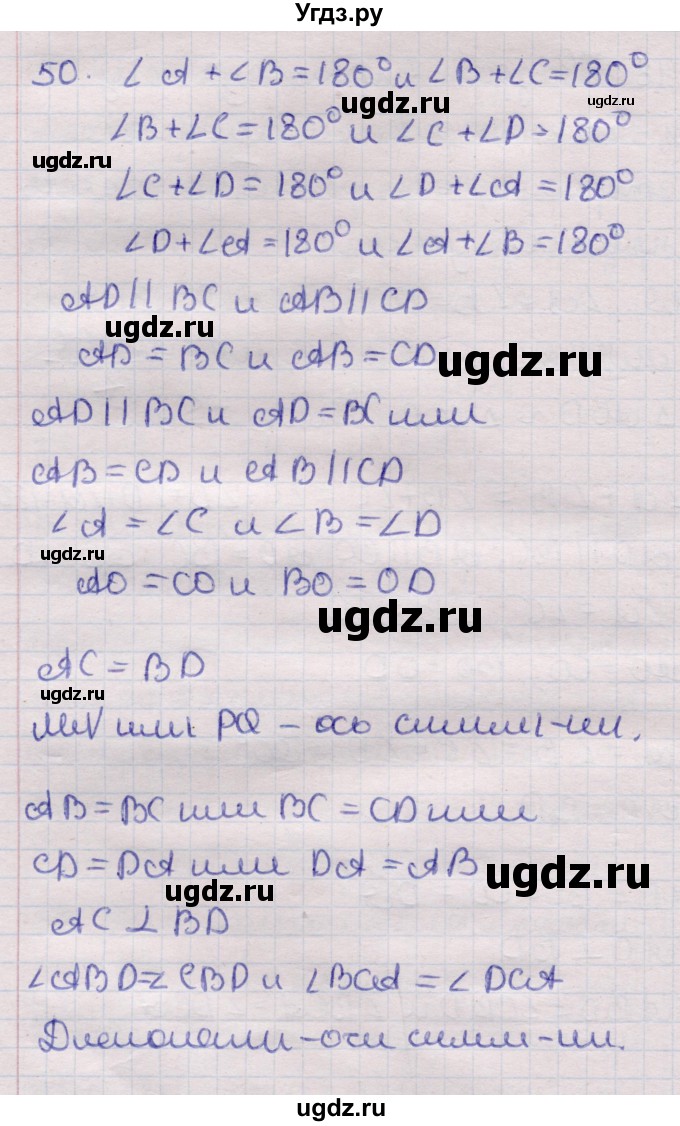 Угдз.ру
50. ∠A + ∠B = 180° и ∠B + ∠C = 180°
ugdz.ru
ugdz.ru
∠B + ∠C = 180° и ∠C + ∠D = 180°
ugdz.ru
∠C + ∠D = 180° и ∠D + ∠A = 180°
∠D + ∠A = 180° и ∠A + ∠B = 180°
AD || BC и AB || CD
ugdz.ru
AD = BC и AB = CD
ugdz.ru
AD || BC и AD = BC или
AB = CD и AB || CD
∠A = ∠C и ∠B = ∠D
ugdz.ru
ugdz.ru
AO = CO и BO = OD
ugdz.ru
AC = BD
ugdz.ru
MN или PQ – ось симм-ии.
AB = BC или BC = CD или
CD = DA или DA = AB
ugdz.ru
ugdz.ru
AC ⊥ BD
∠ABD = ∠CBD и ∠BCA = ∠DCA
ugdz.ru
Диагонали – оси симм-ии.
ugdz.ru